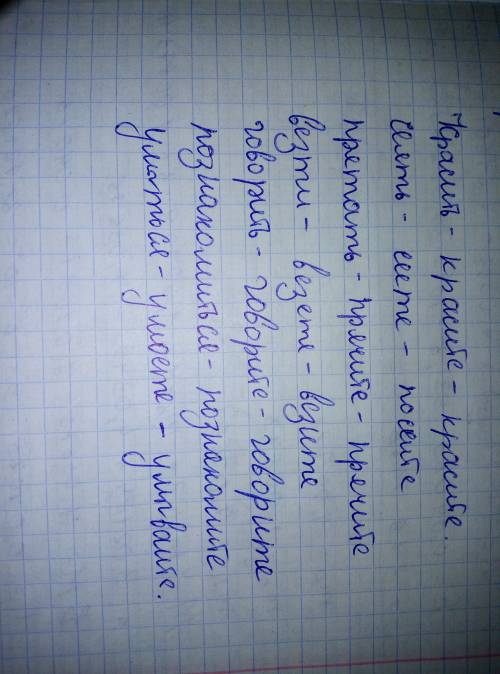 Красить - красите - красите.
сеять - сеете - посеите
прятать - прячите - прячите
везти - везете - везите
говорить - говорите - говорите
познакомиться - познакомите
умыться - умоете - умываите.